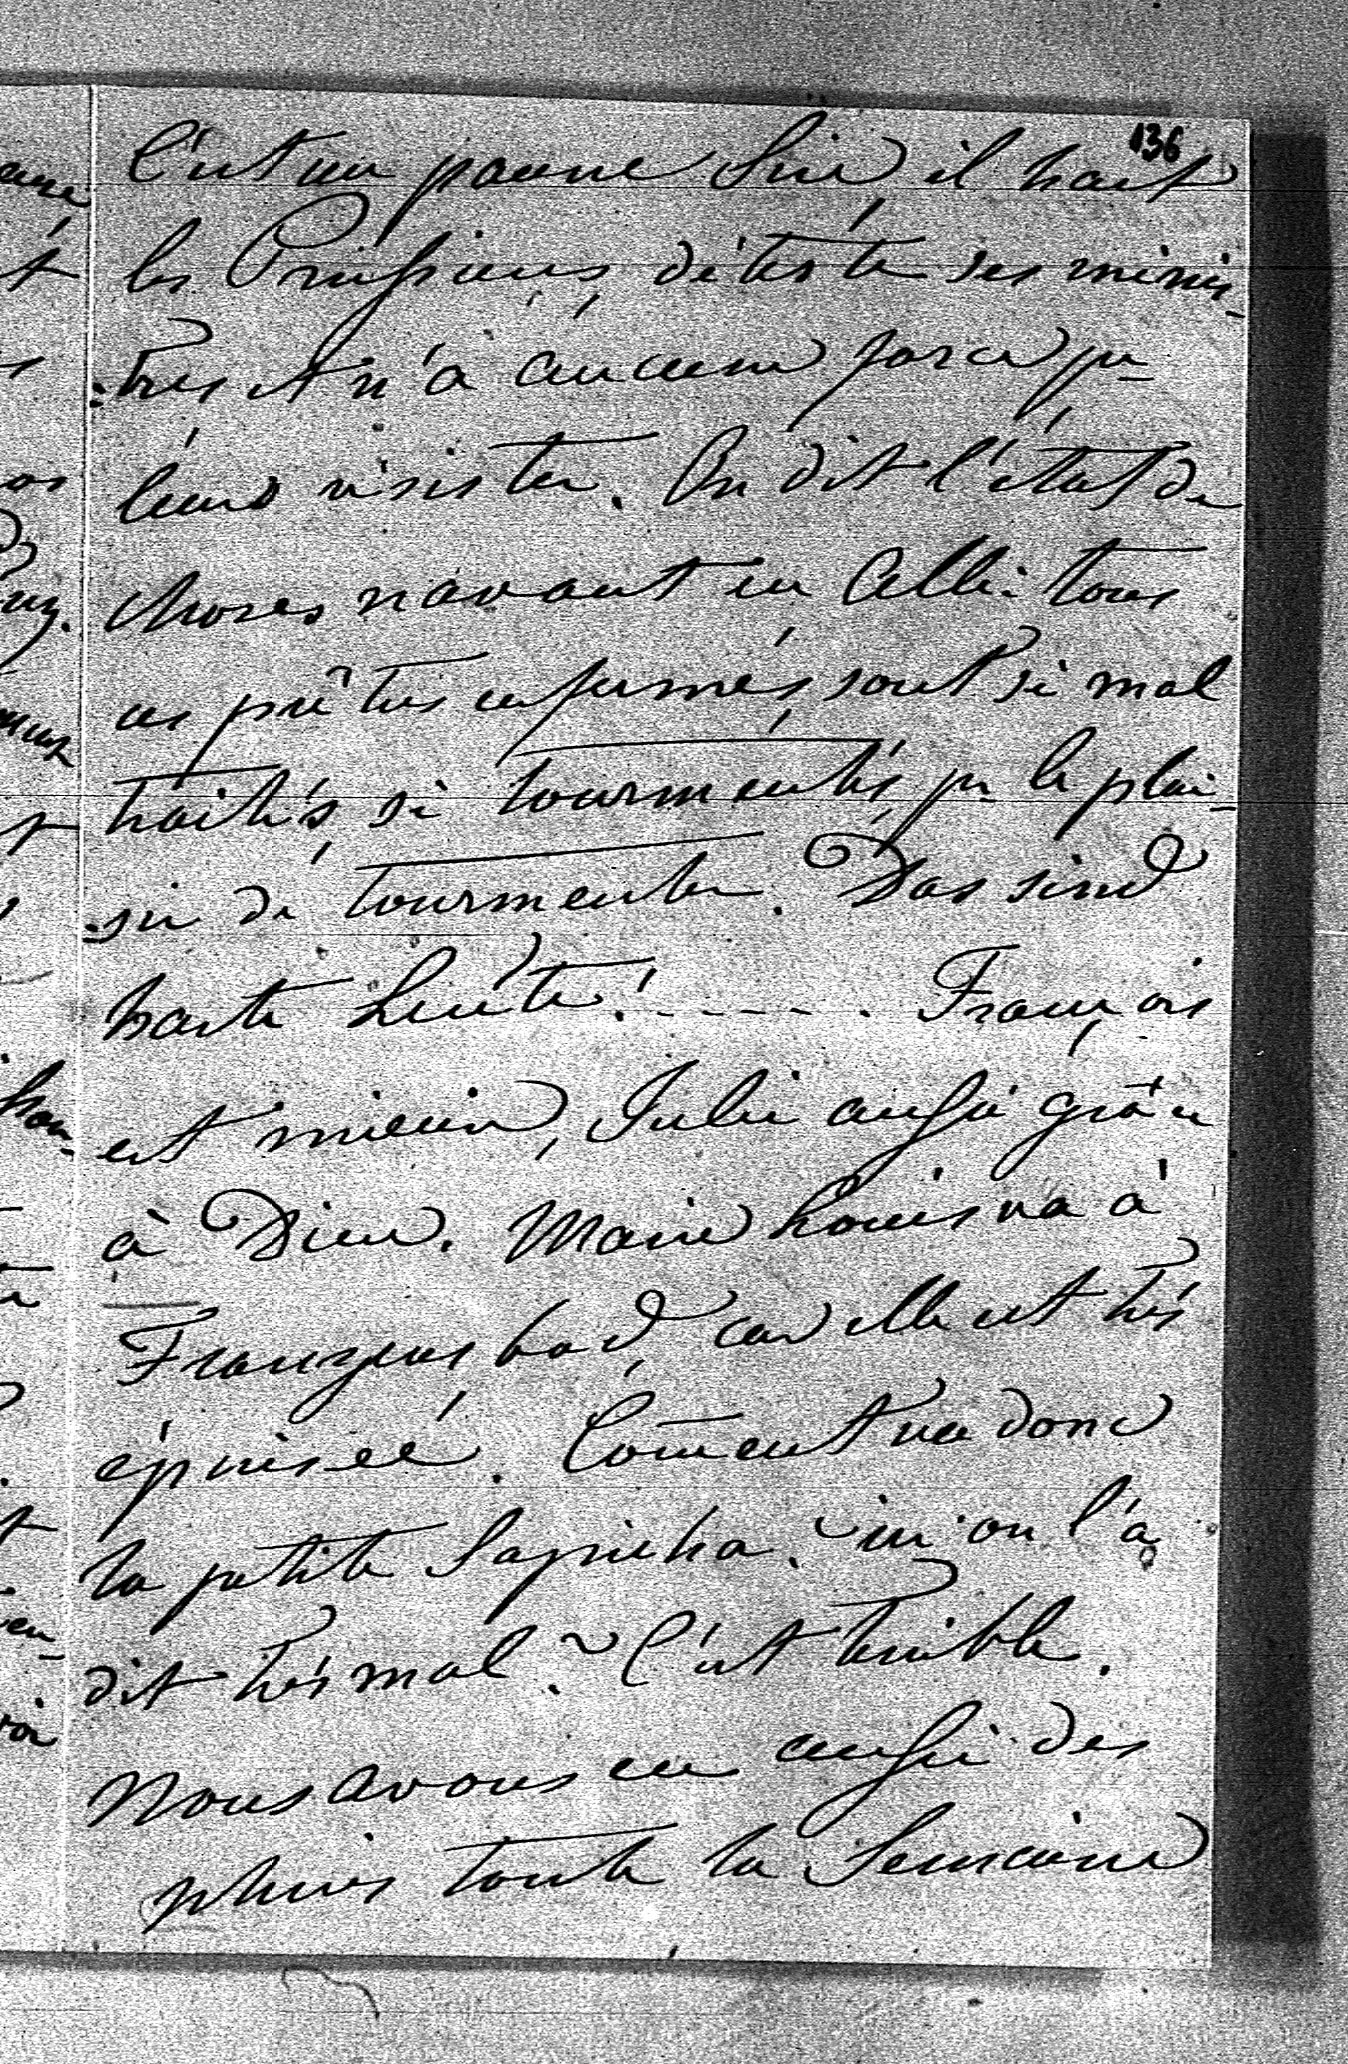 136
C'est un pauvre Sire, il hait
les Prussiens, déteste ses minis-
-tres et n'a aucune force p͞r
leur résister. On dit l'état de
choses navrant en Alle: tous
ces prêtres enfermés, sont si mal
traités, si tourmentés, p͞r le plai-
-sir de tourmenter. Das sind
harte Leute! ----- . François
est mieux, Julie aussi grâce
à Dieu. Marie Louis va à
Franzensbad, car elle est très
épuisée. Com̄ent va donc
la petite Sapieha. ici on l'a
dit très mal? C'est terrible.
Nous avons eu aussi des
pluies toute la Semaine